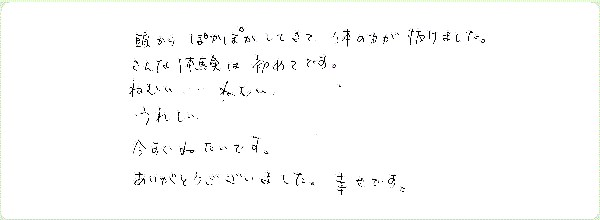 頭からぽかぽかしてきて、体の力が抜けました。
こんな体験は初めてです。
ねむい…ねむい
うれしい
今すぐねたいです。
ありがとうございました。幸せです。